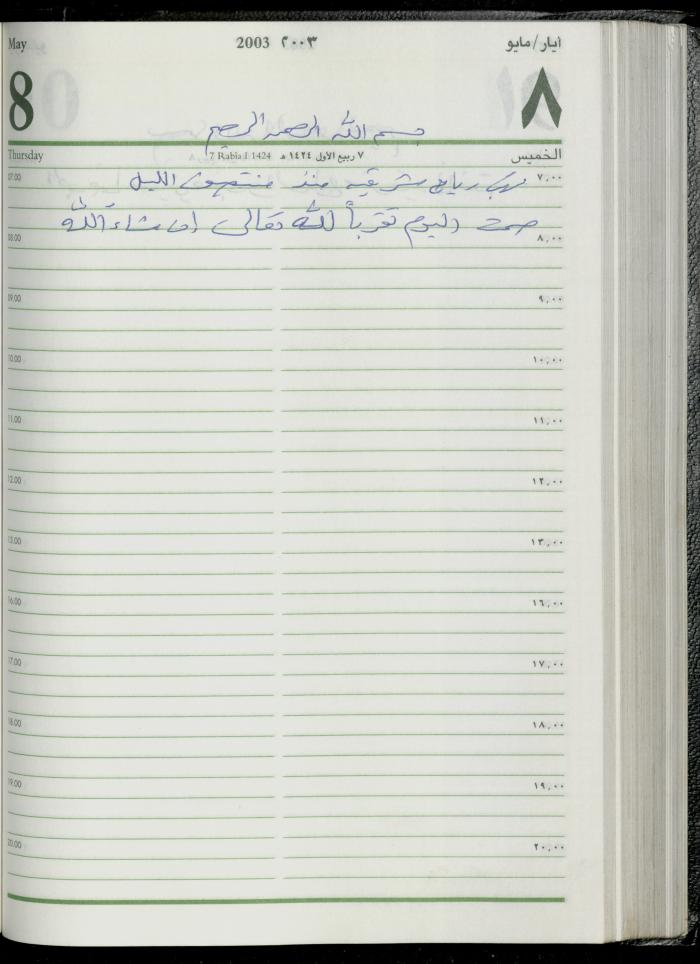 May 2003 ٢٠٠٣ أيار/مايو
8 ٨
بسم الله الرحمن الرحيم
Thursday 7 Rabia I 1424 ٧ ربيع الأول ١٤٢٤ هـ الخميس
07.00 تهب رياح شرقيه منذ منتصف الليل ٧,٠٠
صمت اليوم تقرباً لله تعالى ان شاء الله
08.00 ٨,٠٠
09.00 ٩,٠٠
10.00 ١٠,٠٠
11.00 ١١,٠٠
12.00 ١٢,٠٠
13.00 ١٣,٠٠
16.00 ١٦,٠٠
17.00 ١٧,٠٠
18.00 ١٨,٠٠
19.00 ١٩,٠٠
20.00 ٢٠,٠٠